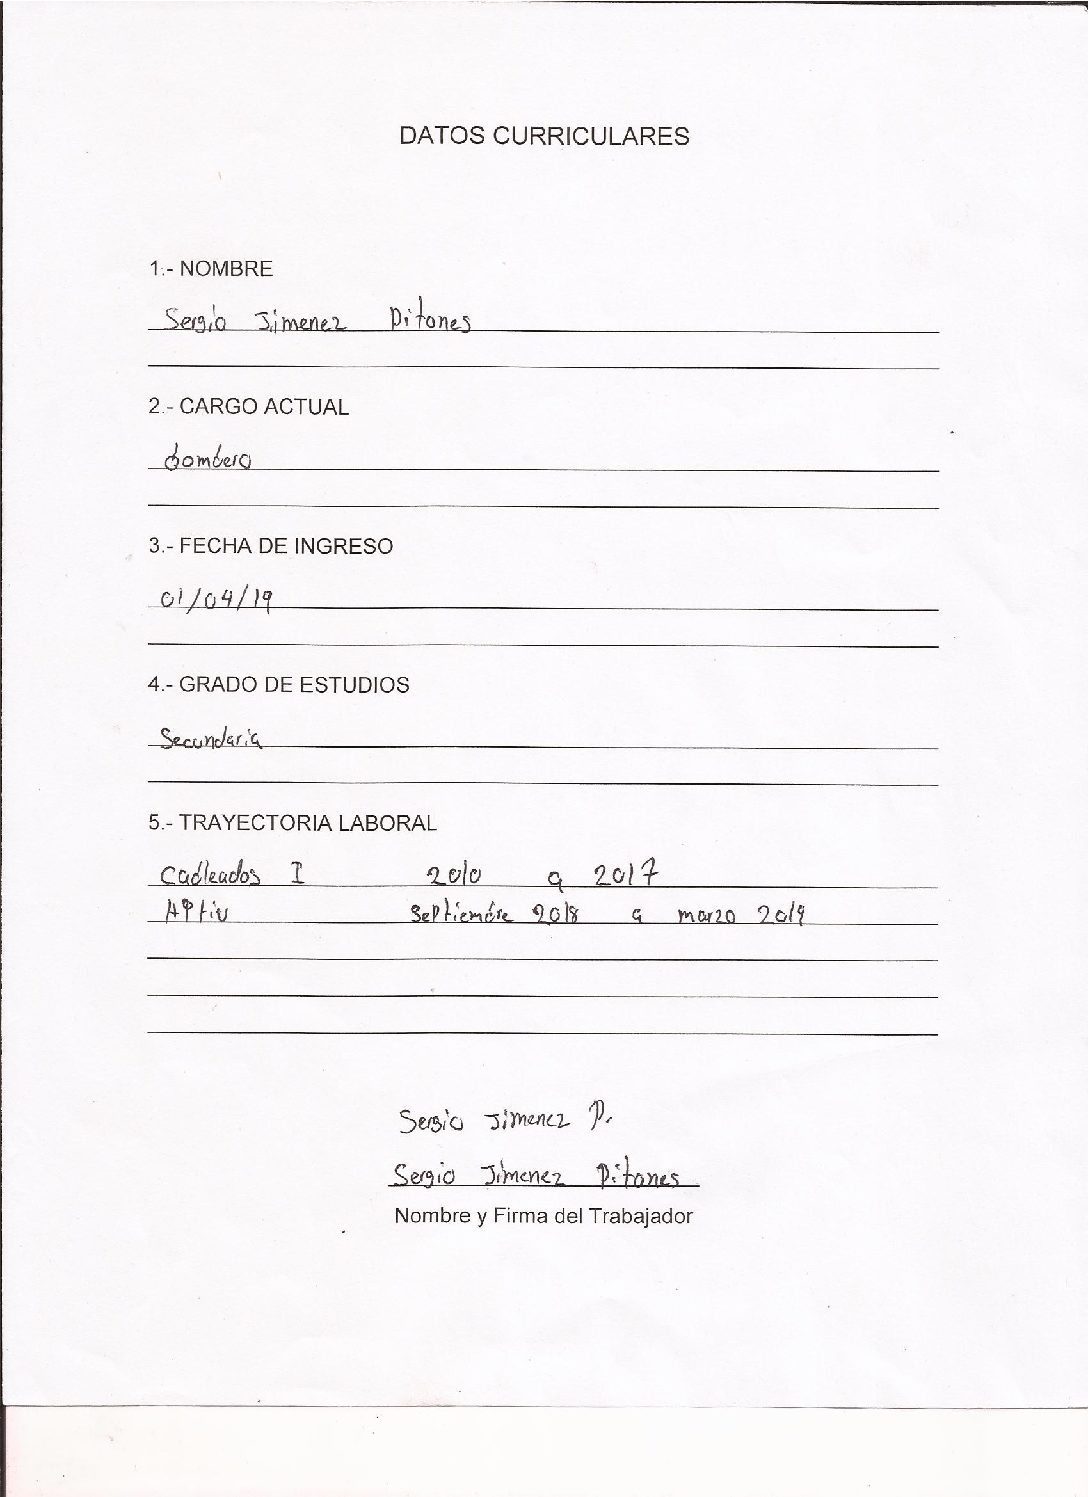 DATOS CURRICULARES
1.- NOMBRE
Sergio Jimenez Pitones
2.- CARGO ACTUAL
bombero
3.- FECHA DE INGRESO
01/04/19
4.- GRADO DE ESTUDIOS
Secundaria
5.- TRAYECTORIA LABORAL
Cableados I 2010 a 2017
APtiv SePtiembre 2018 a marzo 2019
Sergio Jimenez P.
Sergio Jimenez Pitones
Nombre y Firma del Trabajador